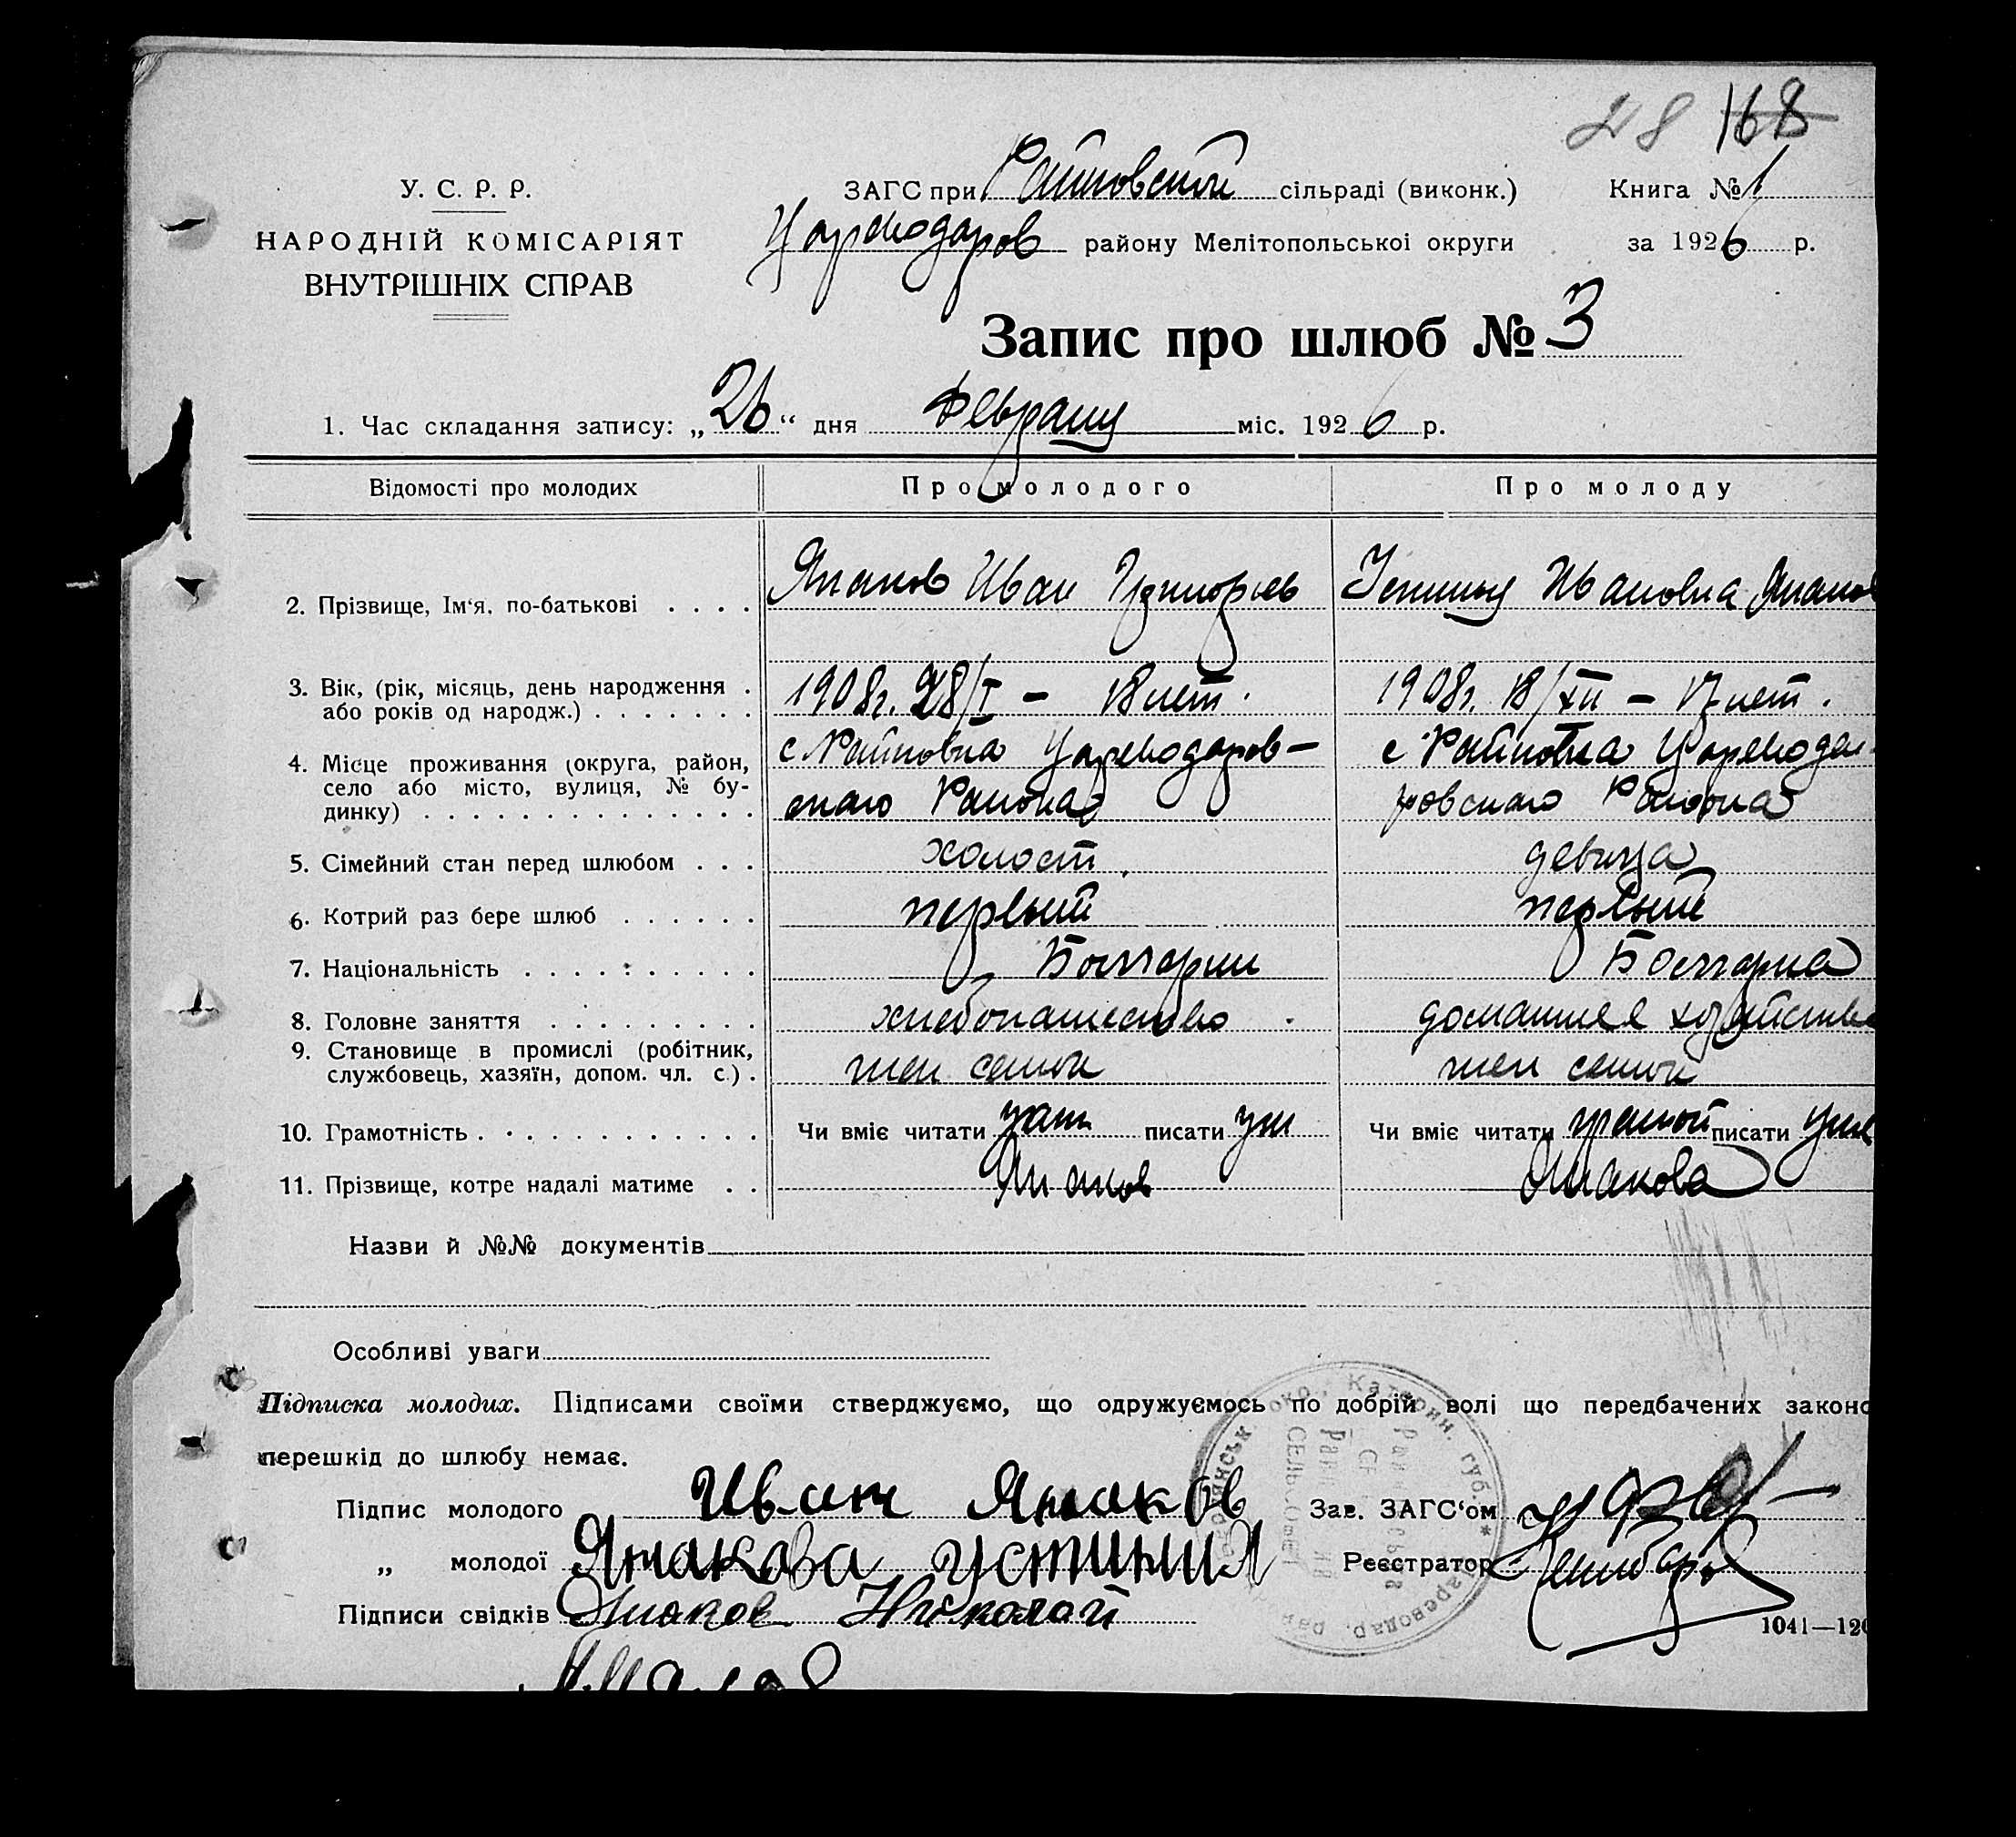 28 168
У. С. Р. Р.
НАРОДНІЙ КОМІСАРІЯТ
ВНУТРІШНІХ СПРАВ
ЗАГС при Райновской сільраді (виконк.) Книга № 1
Цареводаров району Мелітопольськоі округи за 1926 р.
Запис про шлюб № 3
1. Час складання запису: „26“ дня Февраля міс. 1926 р.
Відомості про молодих Про молодого Про молоду
2. Прізвище, Ім‘я, по-батькові . . . . Янаков Иван Григорьев Устинья Ивановна Янаков
3. Вік, (рік, місяць, день народження . або років од народж.) . . . . . . . 1908г. 28/I — 18 лет. 1908г. 18/XII — 17 лет.
4. Місце проживання (округа, район, с Райновка Цареводаров- с Райновка Царевода-
село або місто, вулиця, № бу- динку) . . . . . . . . . . . . . . скаго Района ровскаго Района
5. Сімейний стан перед шлюбом . . . холост девица
6. Котрий раз бере шлюб . . . . . . первый первый
7. Національність . . . . . . . . . . Болгарин Болгарка
8. Головне заняття . . . . . . . . . хлебопашество домашнее хозяйство
9. Становище в промислі (робітник,
службовець, хазяїн, допом. чл. с.) . член семьи член семьи
10. Грамотність . . . . . . . . . . . . Чи вміє читати писати ум Чи вміє читати писати уме
11. Прізвище, котре надалі матиме . . Янаков Янакова
Назви й №№ документів
Особливі уваги
Підписка молодих. Підписами своїми стверджуємо, що одружуємось по добрій волі що передбачених законо
перешкід до шлюбу немає.
Підпис молодого Иван Янаков Зав. ЗАГС‘ом
„ молодої Янакова Устиния Реєстратор
Підписи свідків Янаков Николай
1041—120
Катерин. губ. * Цареводар. рай